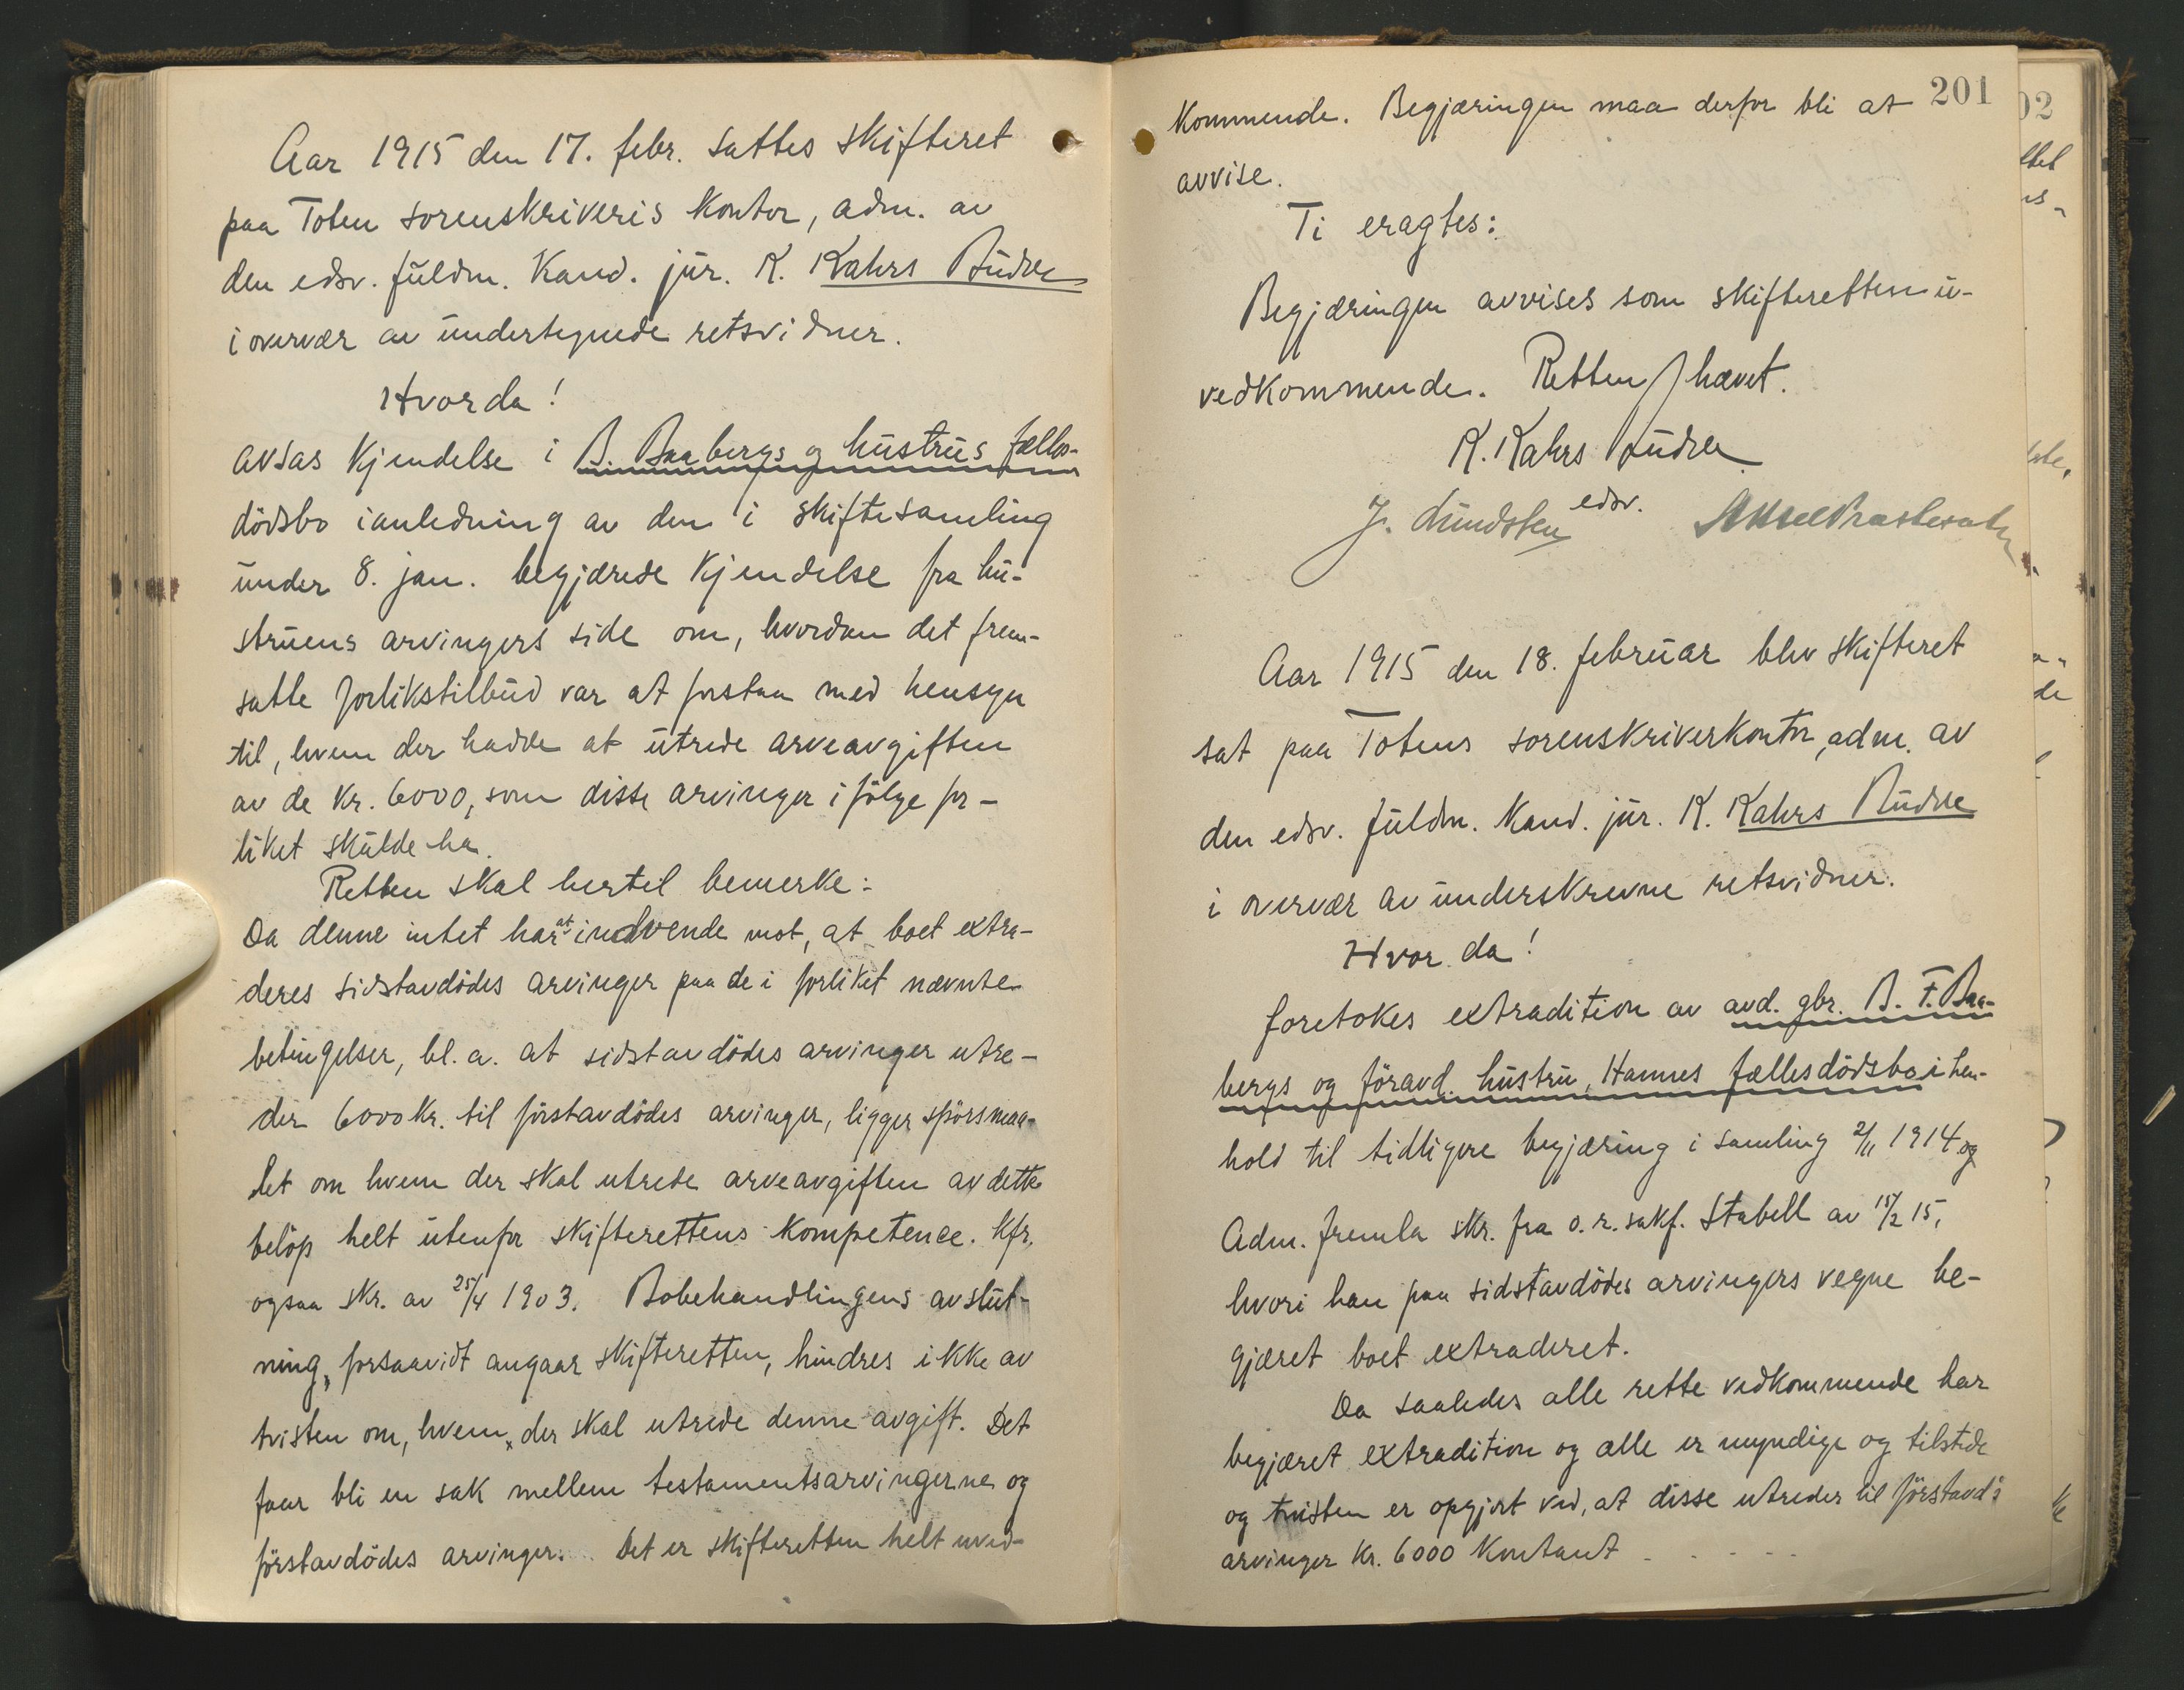 Aar 1915 den 17. febr. sattes skifteret
paa Toten sorenskriveris kontor, adm. av
den edsv. fuldm. Kand. jur. K. Kahrs Budde
i overvær av undertegnede retsvidner.
Hvorda!
avsas kjendelse i B. Baabergs og hustrus fælles-
dödsbo ianledning av den i skiftesamling
under 8. jan. begjærede kjendelse fra hu-
struens arvingers side om, hvordan det frem-
satte forlikstilbud var at forstaa med hensyn
til, hvem der hadde at utrede arveavgiften
av de kr. 6000, som disse arvinger ifölge for-
liket skulde ha.
Retten skal hertil bemerke:
Da denne intet har at indvende mot, at boet extra-
deres sidstavdödes arvinger paa de i forliket nævnte
betingelser, bl. a. at sidstavdödes arvinger utre-
der 6000 kr. til förstavdödes arvinger, ligger spörsmaa-
let om hvem der skal utrede arveavgiften av dette
belöp helt utenfor skifterettens kompetence. kfr.
ogsaa skr. av 25/4 1903. Bobehandlingens avslut-
ning, forsaavidt angaar skifteretten, hindres ikke av
tvisten om, hvem der skal utrede denne avgift. Det
faar bli en sak mellem testamentsarvingerne og
förstavdödes arvinger. Det er skifteretten helt uved-
201
kommende. Begjæringen maa derfor bli at
avvise.
Ti eragtes:
Begjæringen avvises som skifteretten u-
vedkommende. Retten hævet.
K. Kahrs Budde
edsv.
J. Lundsten
Aar 1915 den 18. februar blev skifteret
sat paa Totens sorenskriverkontor, adm. av
den edsv. fuldm. Kand. jur. K. Kahrs Budde
i overvær av underskrevne retsvidner.
Hvor da!
foretokes extradition av avd. gbr. B. F. Baa-
bergs og föravd. hustru, Hannes fællesdödsbo i hen-
hold til tidligere begjæring i samling 2/11 1914 og
Adm. fremla skr. fra o. r. sakf. Stabell av 15/2 15,
hvori han paa sidstavdödes arvingers vegne be-
gjæret boet extraderet.
Da saaledes alle rette vedkommende har
begjæret extradition og alle er myndige og tilstede
og tvisten er opgjort ved, at disse utreder til förstavd's
arvinger kr. 6000 kontant - - - - -